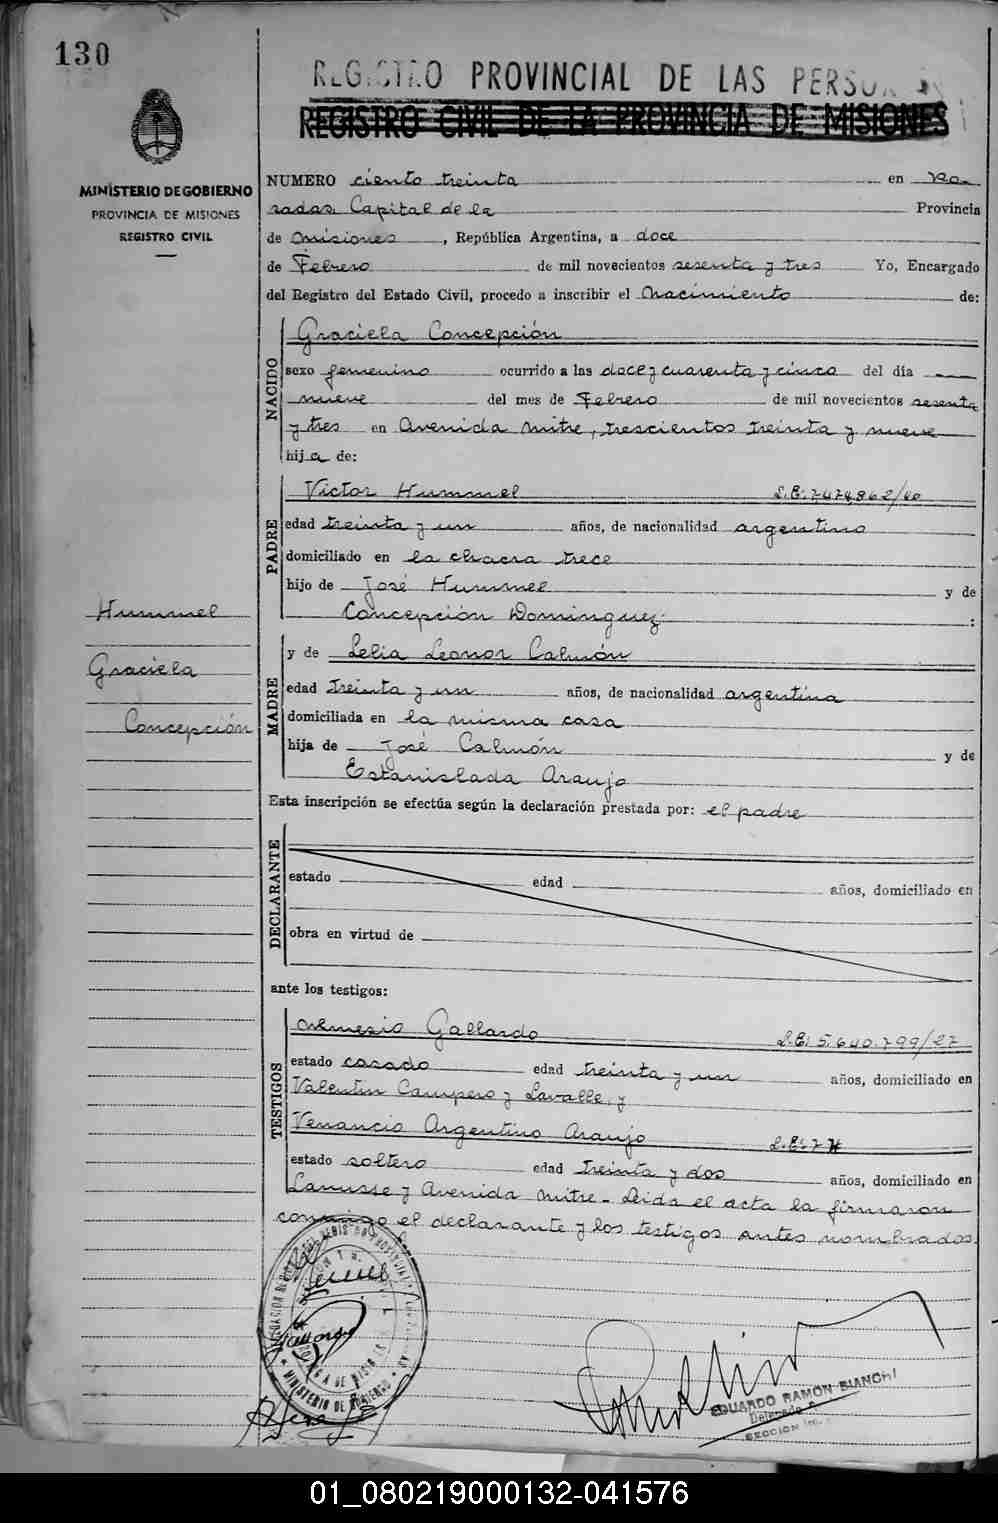 130
REGISTRO PROVINCIAL DE LAS PERSO
REGISTRO CIVIL DE LA PROVINCIA DE MISIONES
MINISTERIO DE GOBIERNO
PROVINCIA DE MISIONES
REGISTRO CIVIL
NUMERO ciento treinta en Po-
sadas, Capital de la Provincia
de Misiones, República Argentina, a doce
de Febrero de mil novecientos sesenta y tres Yo, Encargado
del Registro del Estado Civil, procedo a inscribir el Nacimiento de:
NACIDO
Graciela Concepción
sexo femenino ocurrido a las doce y cuarenta y cinco del día
nueve del mes de Febrero de mil novecientos sesenta
y tres en Avenida Mitre, trescientos treinta y nueve
hija de:
PADRE
Victor Hummel L.E. 7.474.862/40
edad treinta y un años, de nacionalidad argentino
domiciliado en la chacra trece
hijo de José Hummel y de
Concepción Dominguez.:
MADRE
y de Lelia Leonor Calmón
edad treinta y un años, de nacionalidad argentina
domiciliada en la misma casa
hija de José Calmón y de
Estanislada Araujo
Hummel
Graciela
Concepción
Esta inscripción se efectúa según la declaración prestada por: el padre
DECLARANTE
estado edad años, domiciliado en
obra en virtud de
ante los testigos:
TESTIGOS
Nemesio Gallardo L.E. 5.640.799/27
estado casado edad treinta y un años, domiciliado en
Valentin Campero y Lavalle, y
Venancio Argentino Araujo L.E. 7.7
estado soltero edad treinta y dos años, domiciliado en
Lanusse y Avenida Mitre - Leida el acta la firmaron
conmigo el declarante y los testigos antes nombrados
MINISTERIO DE GOBIERNO
EDUARDO RAMON BIANCHI
Delegado
SECCION
01_080219000132-041576